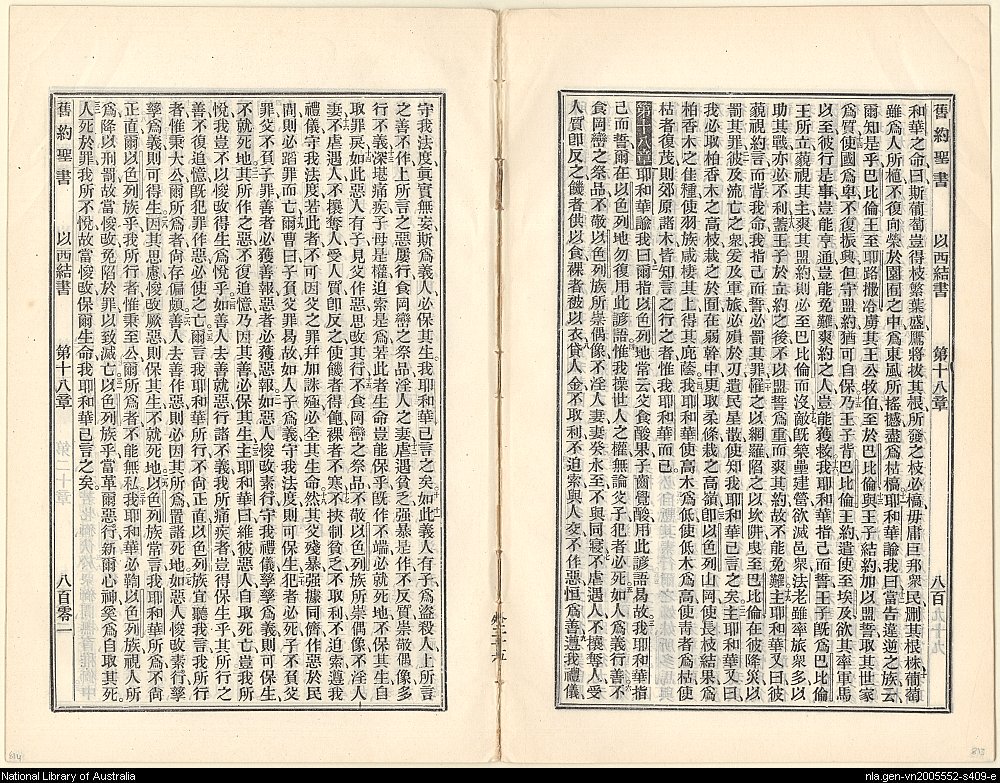 舊約聖書　以西結書　第十八章　八百九十九
和華之命曰斯葡萄豈得枝繁葉盛鷹將拔其根所發之枝必槁毋庸巨邦衆民刪其根株葡萄
雖爲人所植不復向榮於園囿之中爲東風所搖撼盡爲枯槁耶和華諭我曰當告違逆之族云
爾知是乎巴比倫王至耶路撒冷虜其王公牧伯至於巴比倫與王子結約加以盟誓取其世家
爲質使國爲卑不復振興但守盟約猶可自保乃王子背巴比倫王約遣使至埃及欲其率軍馬
以至彼行是事豈能亨通豈能免難爽約之人豈能獲救我耶和華指己而誓王子旣爲巴比倫
王所立藐視其主爽其盟約則必至巴比倫而沒敵旣築壘建營欲滅邑衆法老雖率旅衆多以
助其戰亦必不利蓋王子於立約之後不以盟誓爲重而爽其約故不能免難主耶和華又曰彼
藐視約言而背我命我指己而誓必罰其罪罹之以網羅陷之以坎阱曳至巴比倫在彼降災以
罰其罪彼及流亡之衆爰及軍旅必殞於刃遺民星散使知我耶和華已言之矣主耶和華又曰
我必取柏香木之高枝栽之於囿在弱幹中更取柔條栽之高嶺卽以色列山岡使長枝結果爲
柏香木之佳種使羽族咸棲其上得其庇蔭我耶和華使高木爲低使低木爲高使榮者枯使
枯者復茂則郊原諸木皆知言之行之者惟我耶和華而已
第十八章　耶和華諭我曰爾指以色列地常云父食酸果子齒覺酸用此諺語曷故我耶和華指
己而誓爾在以色列地勿復用此諺語惟我操世人之權無論父子犯者必死如人爲義行善不
食岡巒之祭品不敬以色列族所崇偶像不淫人妻妻癸水至不與同寢不虐遇人不攘奪人受
人質卽反之饑者供以食裸者被以衣貸人金不取利不迫索與人交不作惡恒爲善遵我禮儀
守我法度眞實無妄斯爲義人必保其生我耶和華已言之矣如此義人有子爲盜殺人上所言
之善不作上所言之惡屢行食岡巒之祭品淫人之妻虐遇貧乏强暴是作不反質崇敬偶像多
行不義深堪痛疾子母是權迫索是爲若此者生命豈能保乎旣作不端必就死地不保其生自
取罪戾如此惡人有子見父作惡思改其行不食岡巒之祭品不敬以色列族所崇偶像不淫人
妻不虐遇人不攘奪人受人質卽反之使饑者得飽裸者不寒不挾制貧乏不取利不迫索遵我
禮儀守我法度若此者不可因父之罪幷加誅殛必全其生命然其父殘暴强據同儕作惡於民
間則必蹈罪而亡爾曹曰子負父罪曷故如人子爲義守我法度則可保生犯者必死子不負父
罪父不負子罪善者必獲善報惡者必獲惡報如惡人悛改素行守我禮儀孳孳爲義則可保生
不就死地其所作之惡不復追憶乃因其善必保其生主耶和華曰維彼惡人自取死亡豈我所
悅我豈不以悛改得生爲悅乎如善人去善就惡行諸不義我所痛疾者豈得保生乎其所行之
善不復追憶旣犯罪作惡必使之亡爾言我耶和華所行不尙正直以色列族宜聽我言我所行
者惟秉大公爾所爲者尙存偏頗善人去善作惡則必因其所爲置諸死地如惡人悛改素行孳
孳爲義則可得生因其思慮悛改厥惡則保其生不就死地以色列族常言我耶和華所行不尙
正直爾以色列族乎我所行者惟秉至公爾所爲者不能無私我耶和華必鞫以色列族視人所
爲降以刑罰故當悛改免陷於罪以致滅亡以色列族乎當革爾惡行新爾心神奚爲自取其死
人死於罪我所不悅故當悛改保爾生命我耶和華已言之矣
舊約聖書　以西結書　第十八章　八百零一
National Library of Australia
nla.gen-vn2005552-s409-e